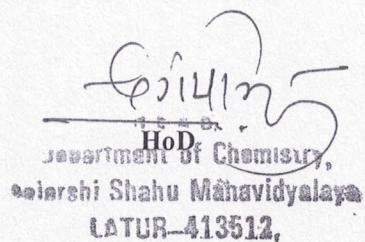 HEAD,
HoD
Department of Chemistry,
Rajarshi Shahu Mahavidyalaya
LATUR-413512,